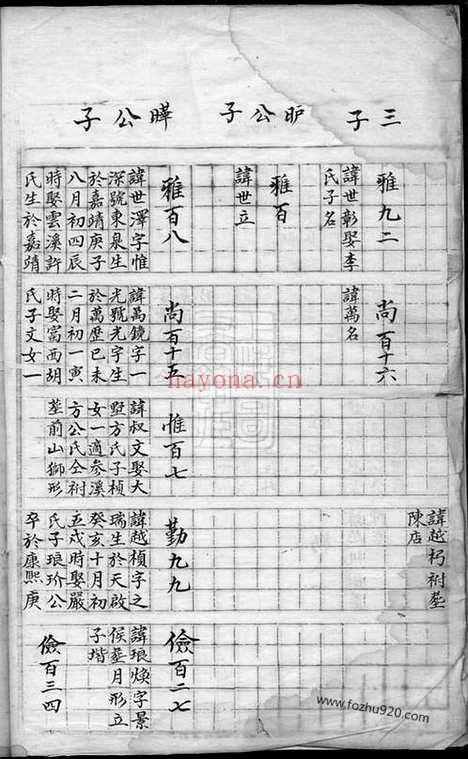 三子
昈公子
曄公子
雅九二
諱世彰娶李
氏子名
雅百
諱世立
雅百八
諱世澤字惟
深號東泉生
於嘉靖庚子
八月初四辰
時娶雲溪許
氏生於嘉靖
尚百十六
諱萬名
尚百十五
諱萬鏡字一
光號光宇生
於萬歷已未
二月初一寅
時娶富西胡
氏子文女一
惟百七
諱叔文娶大
墅方氏子楨
女一適參溪
方公氏仝祔
塟前山獅形
諱越朽祔塟
陳店
勤九九
諱越楨字之
瑞生於天啟
癸亥十月初
五戌時娶嚴
氏子琅玠公
卒於康熙庚
儉百二七
諱琅煥字景
侯塟月形立
子堦
儉百三四
hayona.cn.com
www.fozhu920.com